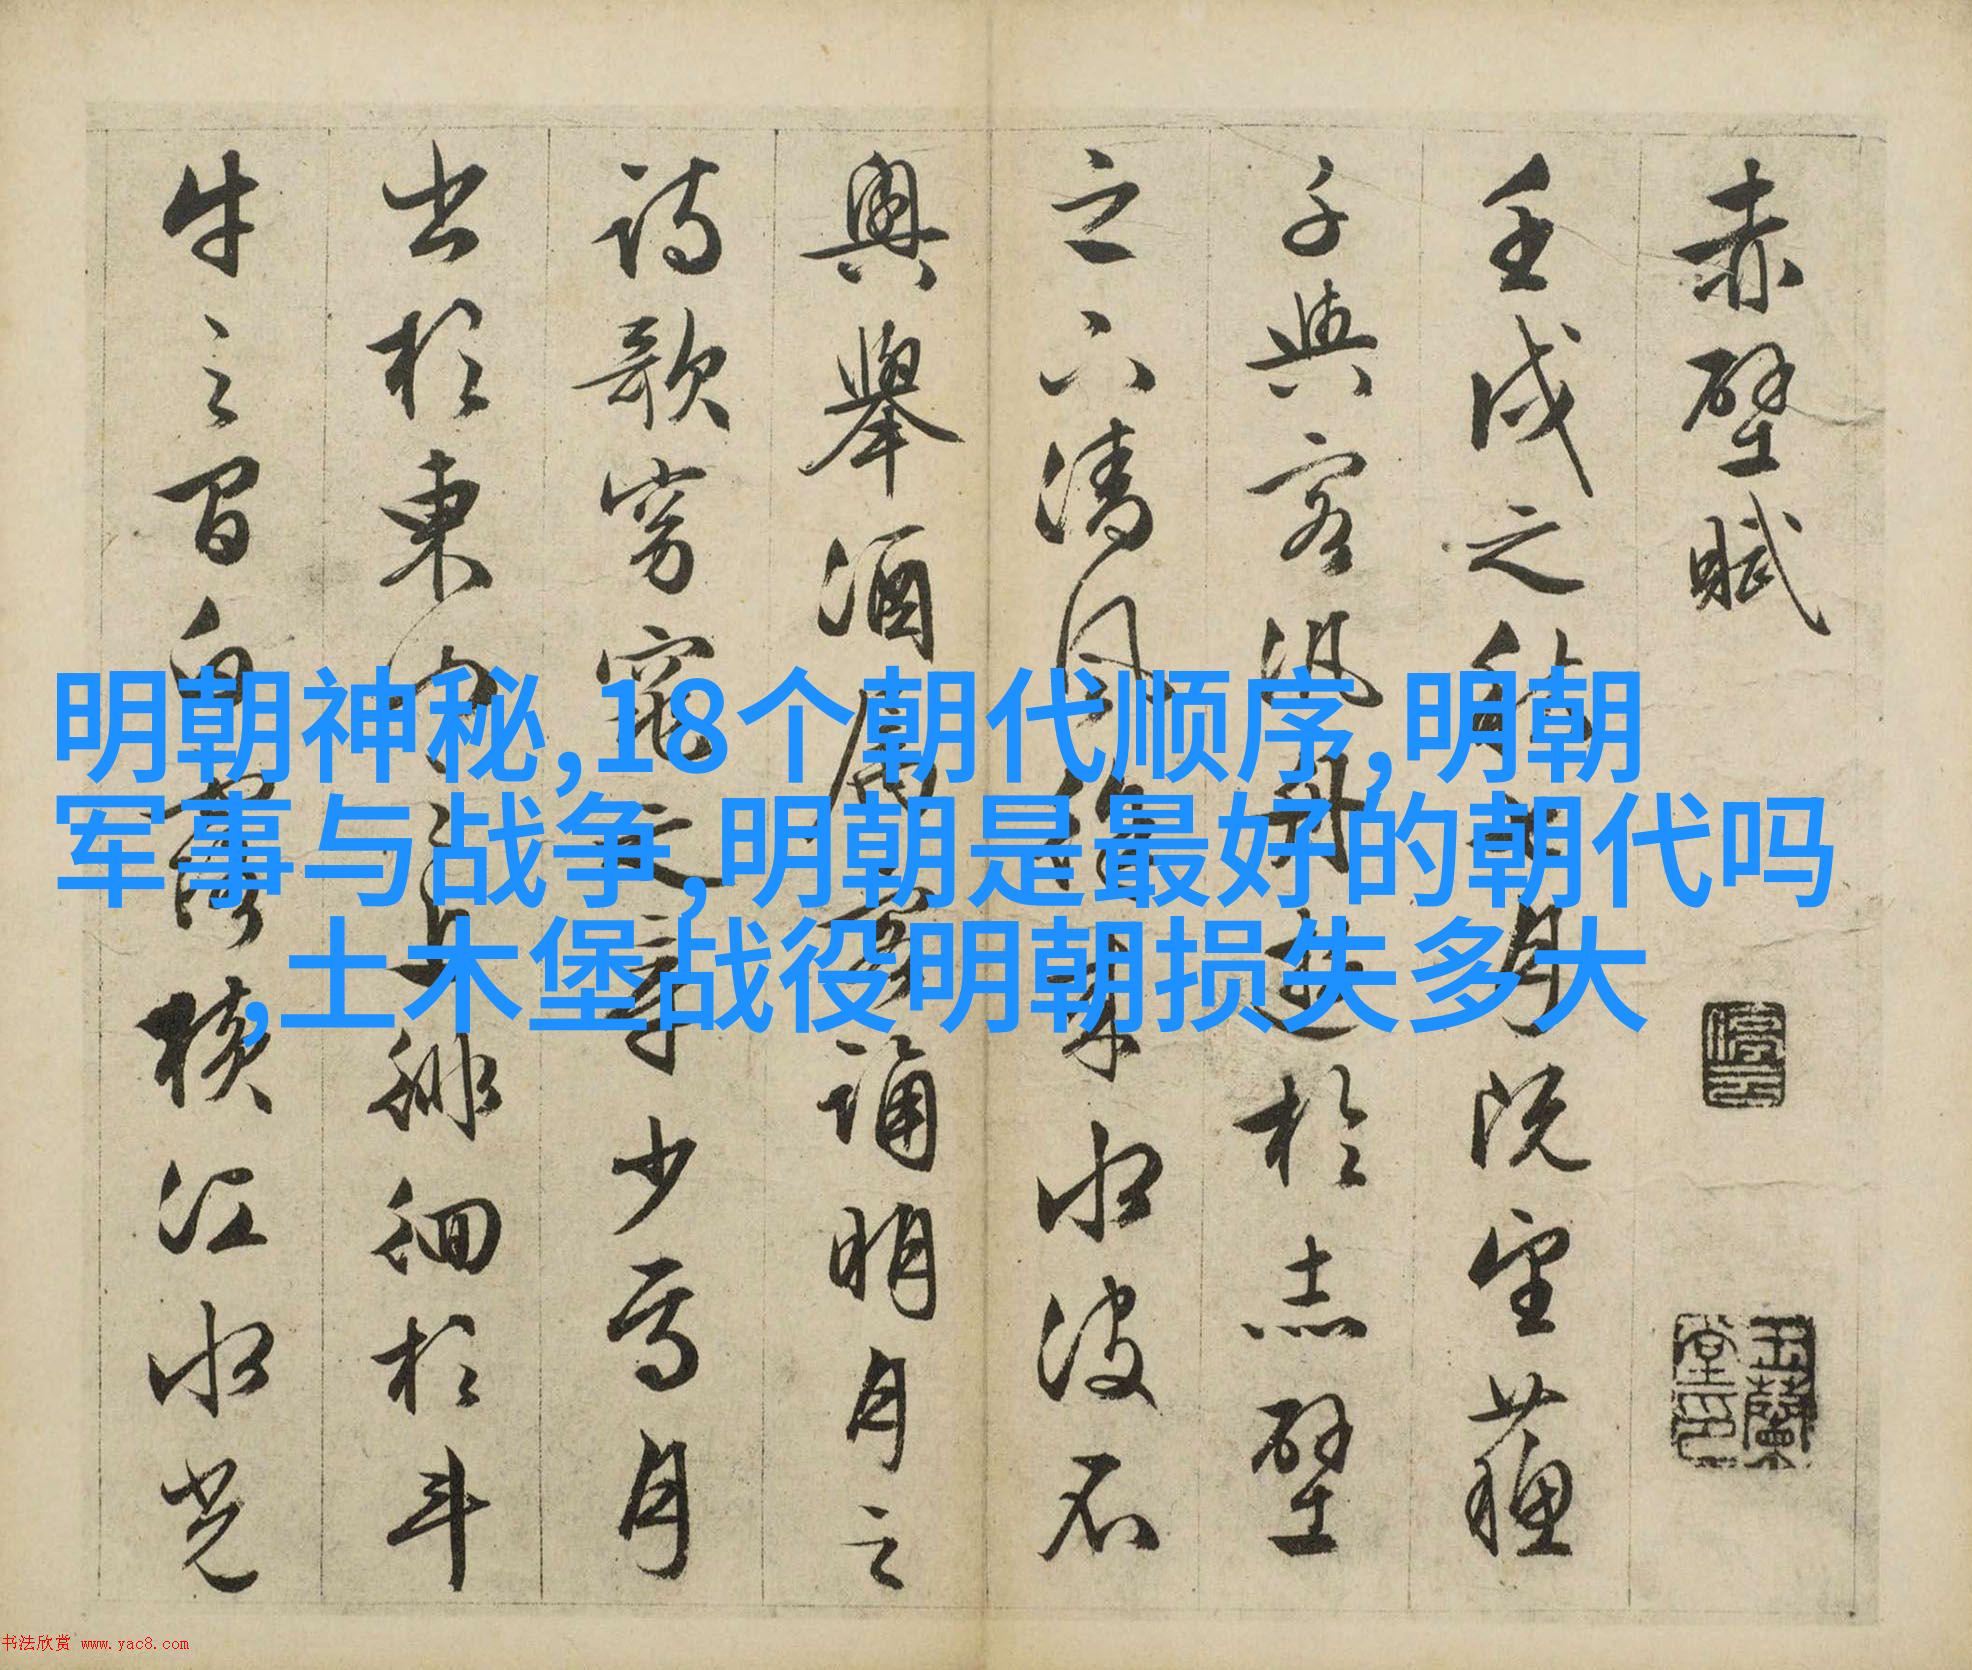 赤壁賦
壬戌之秋七月既望蘓
子與客汎舟遊於赤壁
之下清風徐來水波不
興舉酒屬客誦明月之
詩歌窈窕之章少焉月
出於東山之上徘徊於斗
牛之間白露橫江水光
停雲
玉蘭堂印
明朝神秘,18个朝代顺序,明朝
军事与战争,明朝是最好的朝代吗
,土木堡战役明朝损失多大
书法欣赏 www.yac8.com